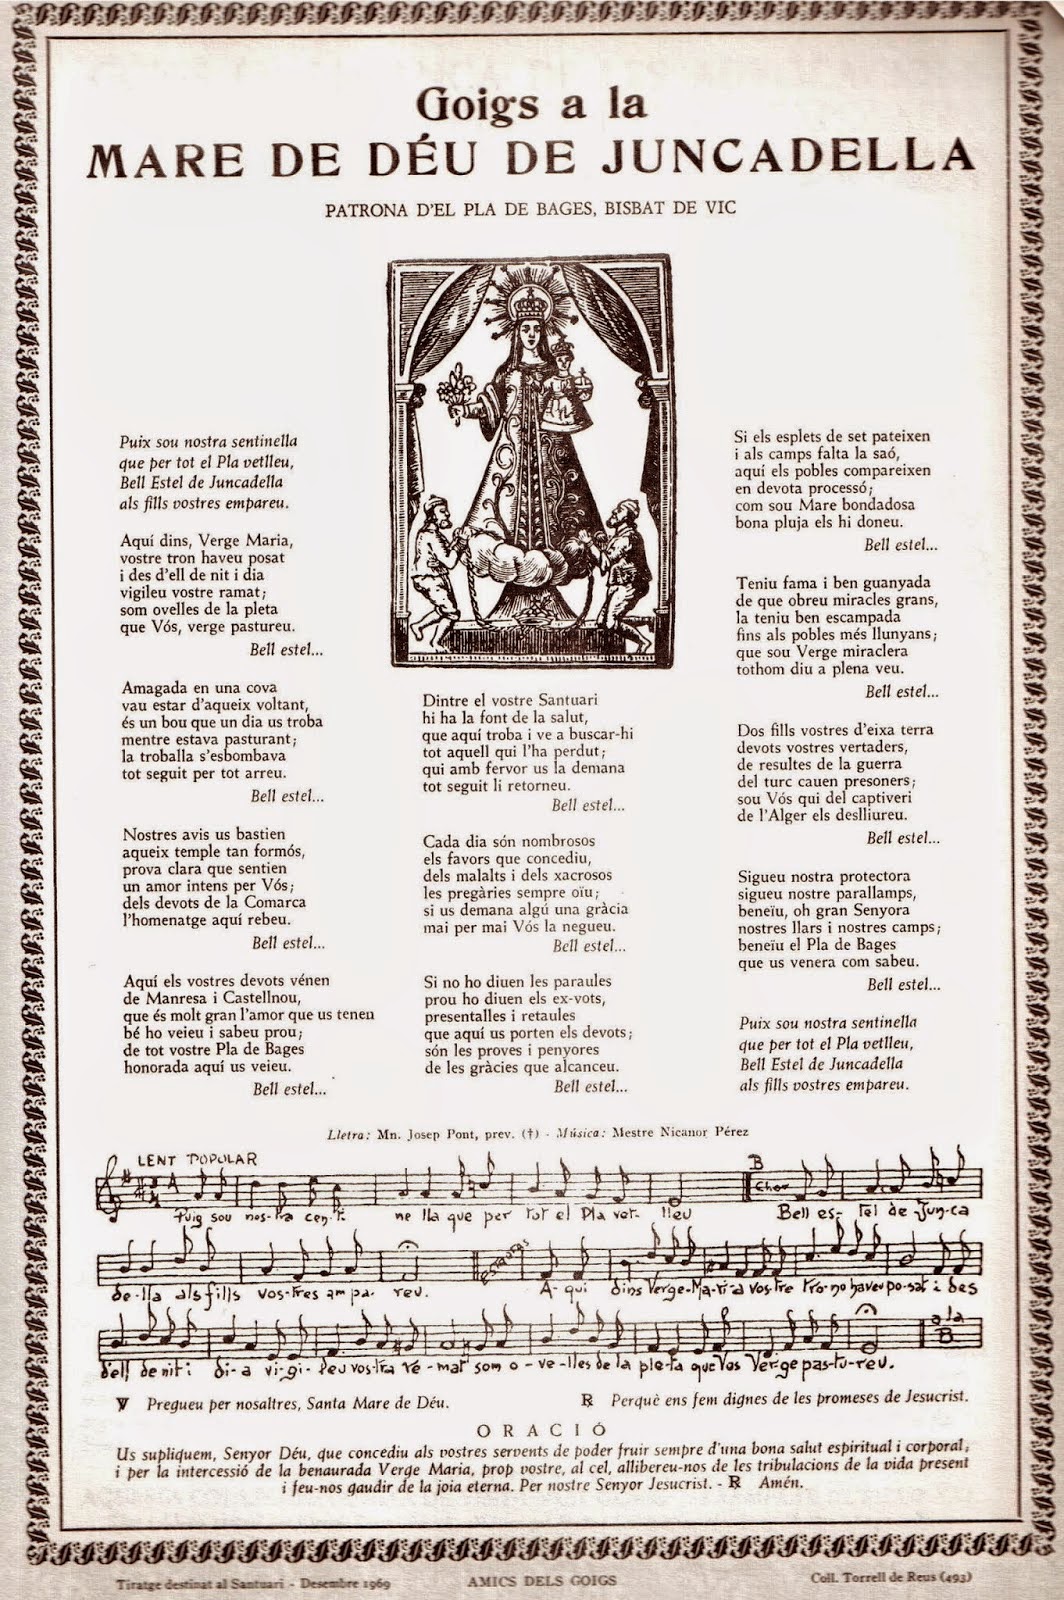 Goigs a la
MARE DE DÉU DE JUNCADELLA
PATRONA D'EL PLA DE BAGES, BISBAT DE VIC
Puix sou nostra sentinella
que per tot el Pla vetlleu,
Bell Estel de Juncadella
als fills vostres empareu.
Aquí dins, Verge Maria,
vostre tron haveu posat
i des d'ell de nit i dia
vigileu vostre ramat;
som ovelles de la pleta
que Vós, verge pastureu.
Bell estel...
Amagada en una cova
vau estar d'aqueix voltant,
és un bou que un dia us troba
mentre estava pasturant;
la troballa s'esbombava
tot seguit per tot arreu.
Bell estel...
Nostres avis us bastien
aqueix temple tan formós,
prova clara que sentien
un amor intens per Vós;
dels devots de la Comarca
l'homenatge aquí rebeu.
Bell estel...
Aquí els vostres devots vénen
de Manresa i Castellnou,
que és molt gran l'amor que us tenen
bé ho veieu i sabeu prou;
de tot vostre Pla de Bages
honorada aquí us veieu.
Bell estel...
Dintre el vostre Santuari
hi ha la font de la salut,
que aquí troba i ve a buscar-hi
tot aquell qui l'ha perdut;
qui amb fervor us la demana
tot seguit li retorneu.
Bell estel...
Cada dia són nombrosos
els favors que concediu,
dels malalts i dels xacrosos
les pregàries sempre oïu;
si us demana algú una gràcia
mai per mai Vós la negueu.
Bell estel...
Si no ho diuen les paraules
prou ho diuen els ex-vots,
presentalles i retaules
que aquí us porten els devots;
són les proves i penyores
de les gràcies que alcanceu.
Bell estel...
Si els esplets de set pateixen
i als camps falta la saó,
aquí els pobles compareixen
en devota processó;
com sou Mare bondadosa
bona pluja els hi doneu.
Bell estel...
Teniu fama i ben guanyada
de que obreu miracles grans,
la teniu ben escampada
fins als pobles més llunyans;
que sou Verge miraclera
tothom diu a plena veu.
Bell estel...
Dos fills vostres d'eixa terra
devots vostres vertaders,
de resultes de la guerra
del turc cauen presoners;
sou Vós qui del captiveri
de l'Alger els deslliureu.
Bell estel...
Sigueu nostra protectora
sigueu nostre parallamps,
beneïu, oh gran Senyora
nostres llars i nostres camps;
beneïu el Pla de Bages
que us venera com sabeu.
Bell estel...
Puix sou nostra sentinella
que per tot el Pla vetlleu,
Bell Estel de Juncadella
als fills vostres empareu.
Lletra: Mn. Josep Pont, prev. (†) - Música: Mestre Nicanor Pérez
LENT POPULAR
B
Chor
Puig sou nos-tra cen-ti- ne lla que per tot el Pla vet- lleu Bell es- tel de Jun-ca
Estrofas
de-lla als fills vos-tres am pa- reu. A- qui dins Verge-Ma-ri-a vos-tre tro-no haveu po-sat i des
a la
B
d'ell de nit i di-a vi-gi-leu vos-tra re-mat som o-ve-lles de la ple-ta que Vos Verge pas-tu-reu.
℣ Pregueu per nosaltres, Santa Mare de Déu. ℟ Perquè ens fem dignes de les promeses de Jesucrist.
ORACIÓ
Us supliquem, Senyor Déu, que concediu als vostres servents de poder fruir sempre d'una bona salut espiritual i corporal;
i per la intercessió de la benaurada Verge Maria, prop vostre, al cel, allibereu-nos de les tribulacions de la vida present
i feu-nos gaudir de la joia eterna. Per nostre Senyor Jesucrist. - ℟ Amén.
Tiratge destinat al Santuari - Desembre 1969 AMICS DELS GOIGS Coll. Torrell de Reus (493)